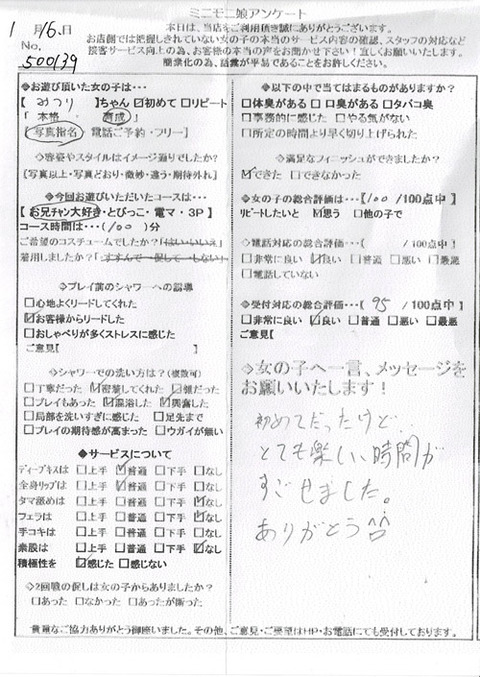 ミニモニ娘アンケート
1月16日
No. 500139
本日は、当店をご利用頂き誠にありがとうございます。
お店側では把握しきれていない女の子の本当のサービス内容の確認、スタッフの対応など
接客サービス向上の為、お客様の本当の声をお聞かせ下さい！宜しくお願いいたします。
簡業化の為、語彙が平易であることをお許しください。
◆お遊び頂いた女の子は…
【 みつり 】ちゃん ☑初めて □リピート
「 本格 育成 」
(写真指名 電話ご予約・フリー】
◇容姿やスタイルはイメージ通りでしたか？
【写真以上・写真どおり・微妙・違う・期待外れ】
◆今回お遊びいただいたコースは…
【お兄チャン大好き・とびっこ・電マ・3P】
コース時間は…(100)分
ご希望のコスチュームでしたか？「はい・いいえ」
着用しましたか？「すすんで・促して・しない」
◇プレイ前のシャワーへの誘導
□心地よくリードしてくれた
☑お客様からリードした
□おしゃべりが多くストレスに感じた
ご意見【 】
◇シャワーでの洗い方は？(複数可)
□丁寧だった ☑密着してくれた □雑だった
□プレイもあった ☑混浴した ☑興奮した
□局部を洗いすぎに感じた □足先まで
□プレイの期待感が高まった □ウガイが無い
◆サービスについて
ディープキスは □上手 ☑普通 □下手 □なし
全身リップは □上手 ☑普通 □下手 □なし
タマ舐めは □上手 □普通 □下手 ☑なし
フェラは □上手 □普通 □下手 ☑なし
手コキは □上手 □普通 □下手 □なし
素股は □上手 □普通 □下手 ☑なし
積極性を ☑感じた □感じない
◇2回戦の促しは女の子からありましたか？
□あった □なかった □あったが断った
◆以下の中で当てはまるものがありますか？
□体臭がある □口臭がある □タバコ臭
□事務的に感じた □やる気がない
□所定の時間より早く切り上げられた
◇満足なフィニッシュができましたか？
☑できた □できなかった
◆女の子の総合評価は…【100/100点中】
リピートしたいと ☑思う □他の子で
◇電話対応の総合評価…( /100点中】
□非常に良い ☑良い □普通 □悪い □最悪
□電話していない
◆受付対応の総合評価…( 95 /100点中】
□非常に良い ☑良い □普通 □悪い □最悪
ご意見【
◇女の子へ一言、メッセージを
お願いいたします！
初めてだったけど
とても楽しい、時間が
すごせました。
ありがとう
貴重なご協力ありがとう御座いました。その他、ご意見・ご要望はHP・お電話にても受付しております。